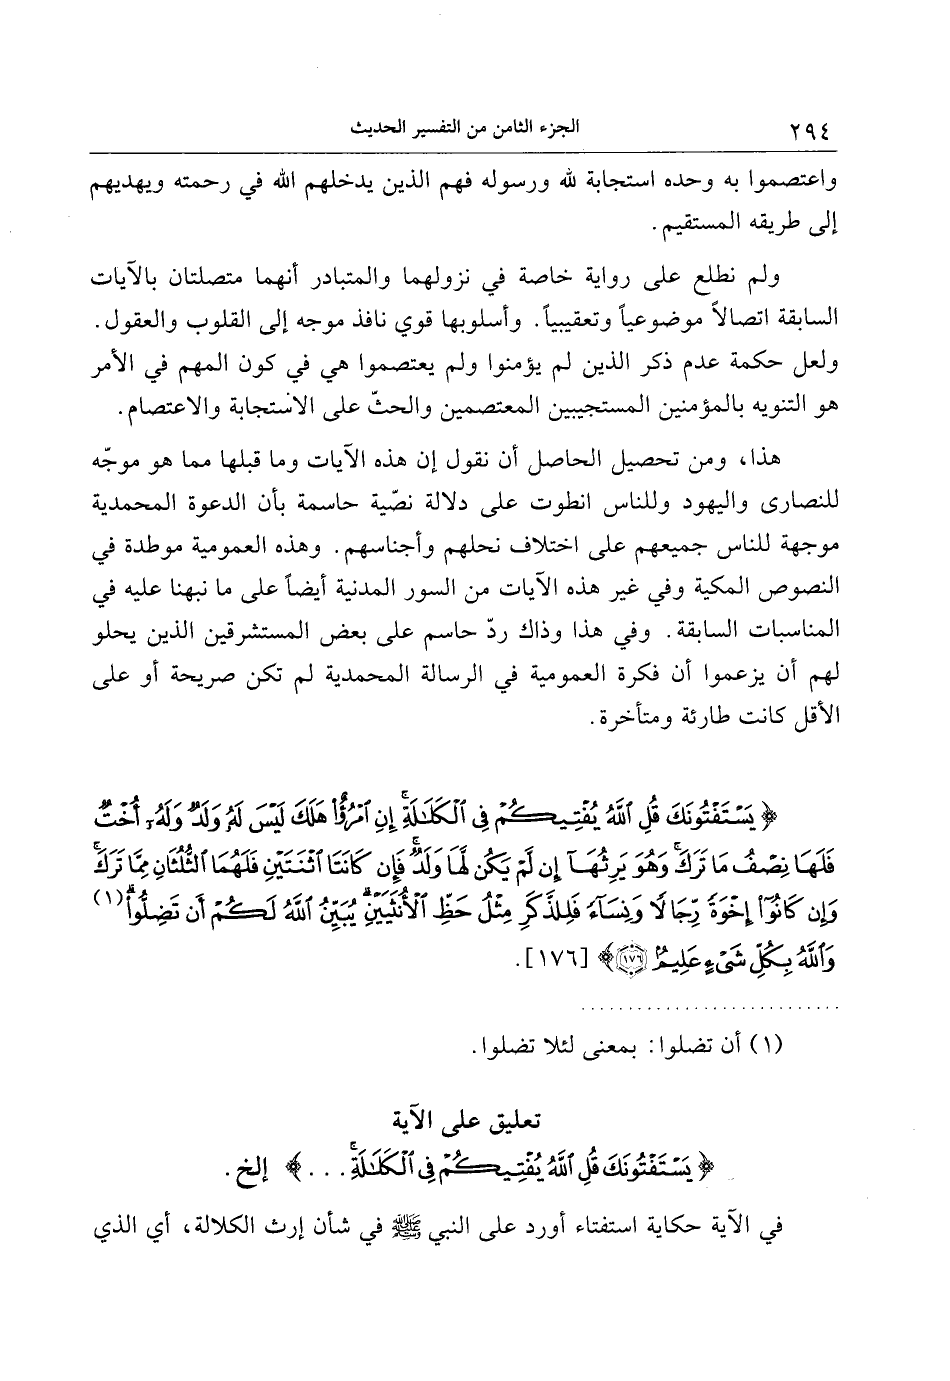 ٢٩٤ الجزء الثامن من التفسير الحديث
واعتصموا به وحده استجابة لله ورسوله فهم الذين يدخلهم الله في رحمته ويهديهم
إلى طريقه المستقيم.
ولم نطلع على رواية خاصة في نزولهما والمتبادر أنهما متصلتان بالآيات
السابقة اتصالاً موضوعياً وتعقيبياً. وأسلوبها قوي نافذ موجه إلى القلوب والعقول.
ولعل حكمة عدم ذكر الذين لم يؤمنوا ولم يعتصموا هي في كون المهم في الأمر
هو التنويه بالمؤمنين المستجيبين المعتصمين والحثّ على الاستجابة والاعتصام.
هذا، ومن تحصيل الحاصل أن نقول إن هذه الآيات وما قبلها مما هو موجّه
للنصارى واليهود وللناس انطوت على دلالة نصّية حاسمة بأن الدعوة المحمدية
موجهة للناس جميعهم على اختلاف نحلهم وأجناسهم. وهذه العمومية موطدة في
النصوص المكية وفي غير هذه الآيات من السور المدنية أيضاً على ما نبهنا عليه في
المناسبات السابقة. وفي هذا وذاك ردّ حاسم على بعض المستشرقين الذين يحلو
لهم أن يزعموا أن فكرة العمومية في الرسالة المحمدية لم تكن صريحة أو على
الأقل كانت طارئة ومتأخرة.
﴿ يَسْتَفْتُونَكَ قُلِ ٱللَّهُ يُفْتِيكُمْ فِى ٱلْكَلَـٰلَةِۚ إِنِ ٱمْرُؤٌا۟ هَلَكَ لَيْسَ لَهُۥ وَلَدٌ وَلَهُۥٓ أُخْتٌ
فَلَهَا نِصْفُ مَا تَرَكَۚ وَهُوَ يَرِثُهَآ إِن لَّمْ يَكُن لَّهَا وَلَدٌۚ فَإِن كَانَتَا ٱثْنَتَيْنِ فَلَهُمَا ٱلثُّلُثَانِ مِمَّا تَرَكَۚ
وَإِن كَانُوٓا۟ إِخْوَةً رِّجَالًا وَنِسَآءً فَلِلذَّكَرِ مِثْلُ حَظِّ ٱلْأُنثَيَيْنِۗ يُبَيِّنُ ٱللَّهُ لَكُمْ أَن تَضِلُّوا۟ۗ (١)
وَٱللَّهُ بِكُلِّ شَىْءٍ عَلِيمٌۢ ١٧٦ ﴾ [١٧٦].
(١) أن تضلوا: بمعنى لئلا تضلوا.
تعليق على الآية
﴿ يَسْتَفْتُونَكَ قُلِ ٱللَّهُ يُفْتِيكُمْ فِى ٱلْكَلَـٰلَةِۚ ... ﴾ إلخ.
في الآية حكاية استفتاء أورد على النبي ﷺ في شأن إرث الكلالة، أي الذي